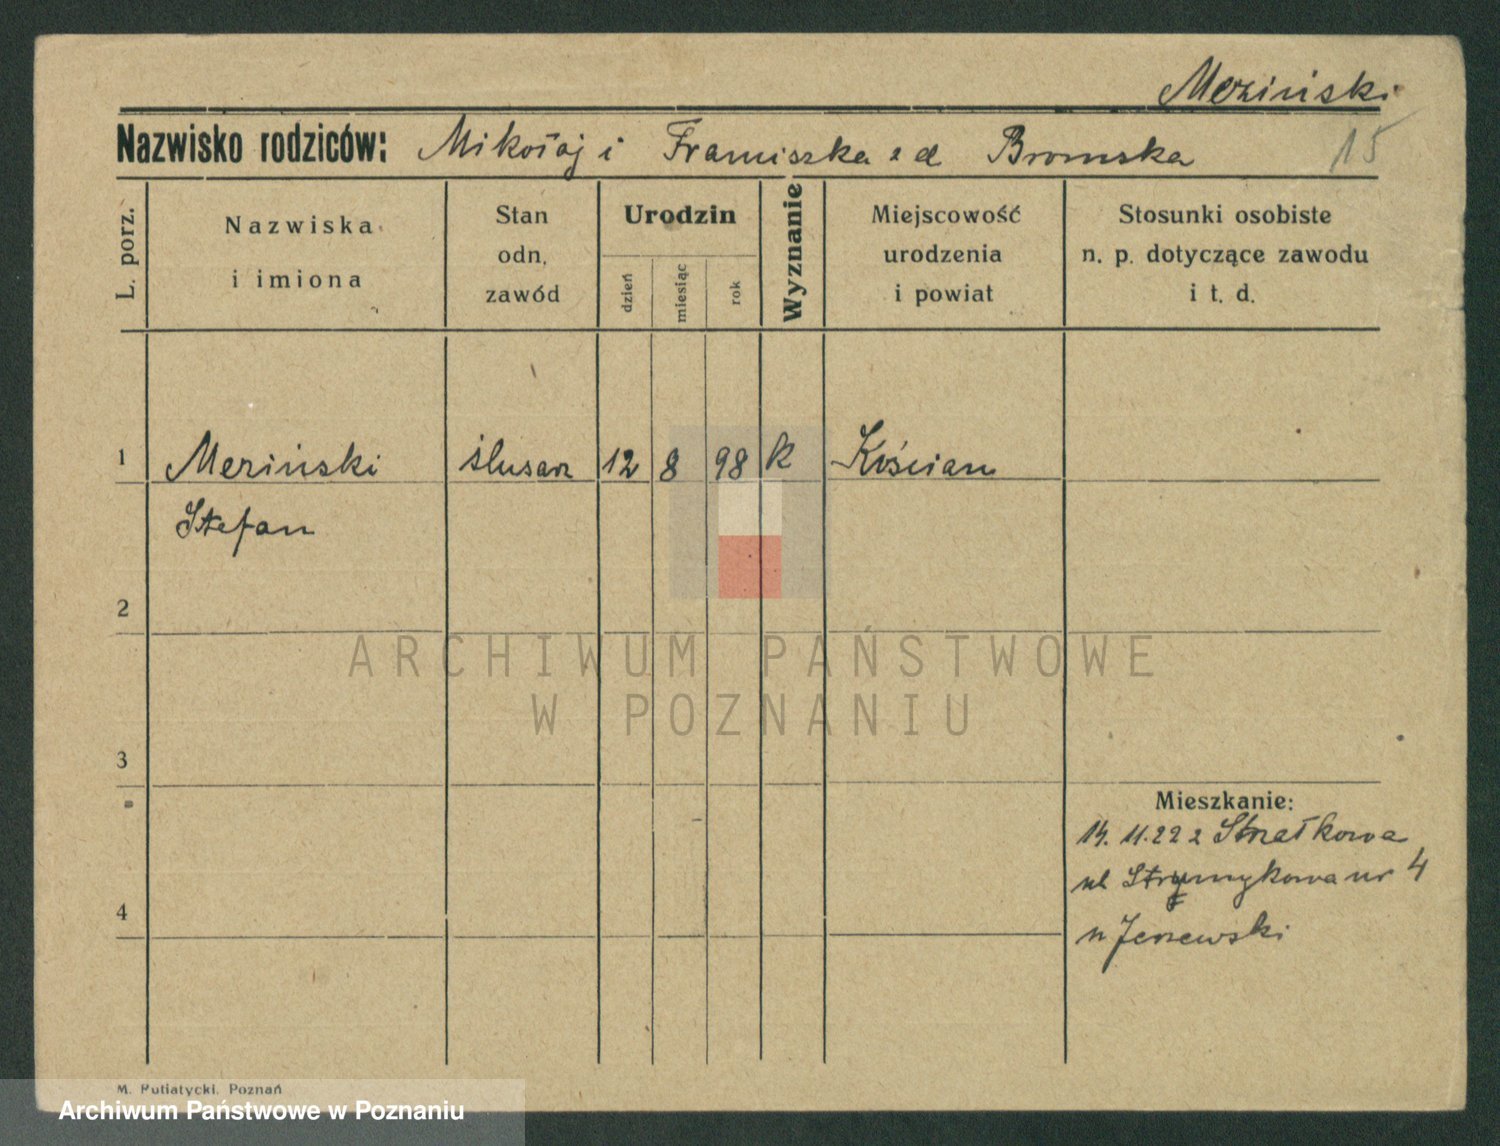 Meziński
Nazwisko rodziców: Mikołaj i Franciszka z d Bromska 15
L. porz.
Nazwiska
i imiona
Stan
odn.
zawód
Urodzin
dzień
miesiąc
rok
Wyznanie
Miejscowość
urodzenia
i powiat
Stosunki osobiste
n. p. dotyczące zawodu
i t. d.
1 Meziński ślusarz 12 8 98 k Kościan
Stefan
2
ARCHIWUM PAŃSTWOWE
W POZNANIU
3
Mieszkanie:
14. 11. 22 z Strzałkowa
ul nr 4
u Jerzewski
4
M. Putiatycki, Poznań
Archiwum Państwowe w Poznaniu